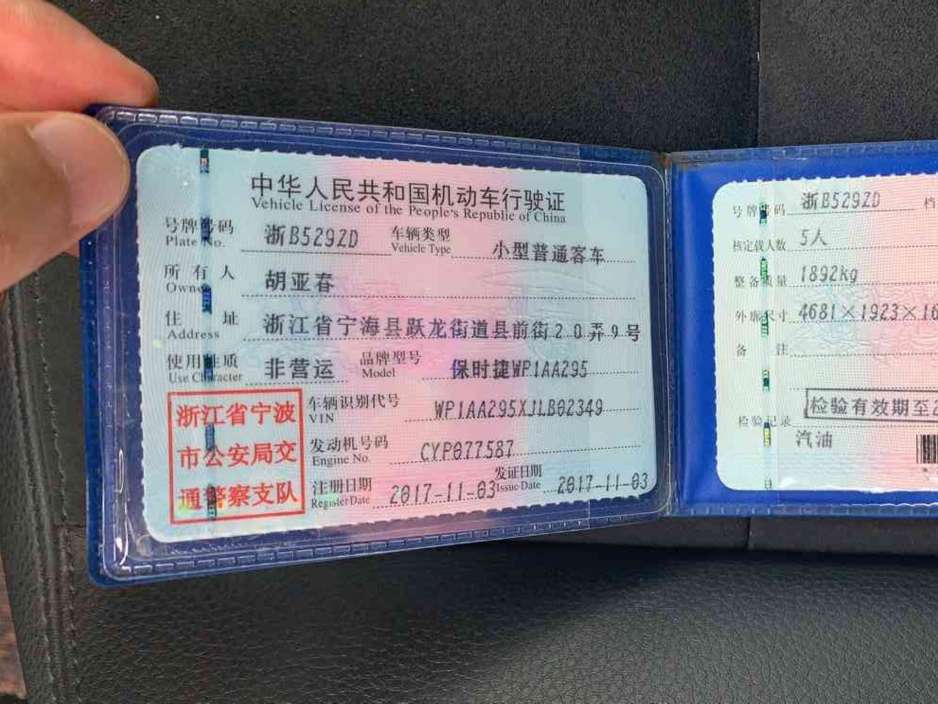 中华人民共和国机动车行驶证
Vehicle License of the People's Republic of China
号牌号码 浙B529ZD 车辆类型 小型普通客车
Plate No. Vehicle Type
所有人 胡亚春
Owner
住址 浙江省宁海县跃龙街道县前街20弄9号
Address
使用性质 非营运 品牌型号 保时捷WP1AA295
Use Character Model
浙江省宁波
市公安局交
通警察支队
车辆识别代号 WP1AA295XJLB02349
VIN
发动机号码 CYP077587
Engine No.
注册日期 2017-11-03 发证日期 2017-11-03
Register Date Issue Date
号牌号码 浙B529ZD 档
核定载人数 5人
整备质量 1892kg
外廓尺寸 4681×1923×16
备注
检验有效期至2
检验记录
汽油